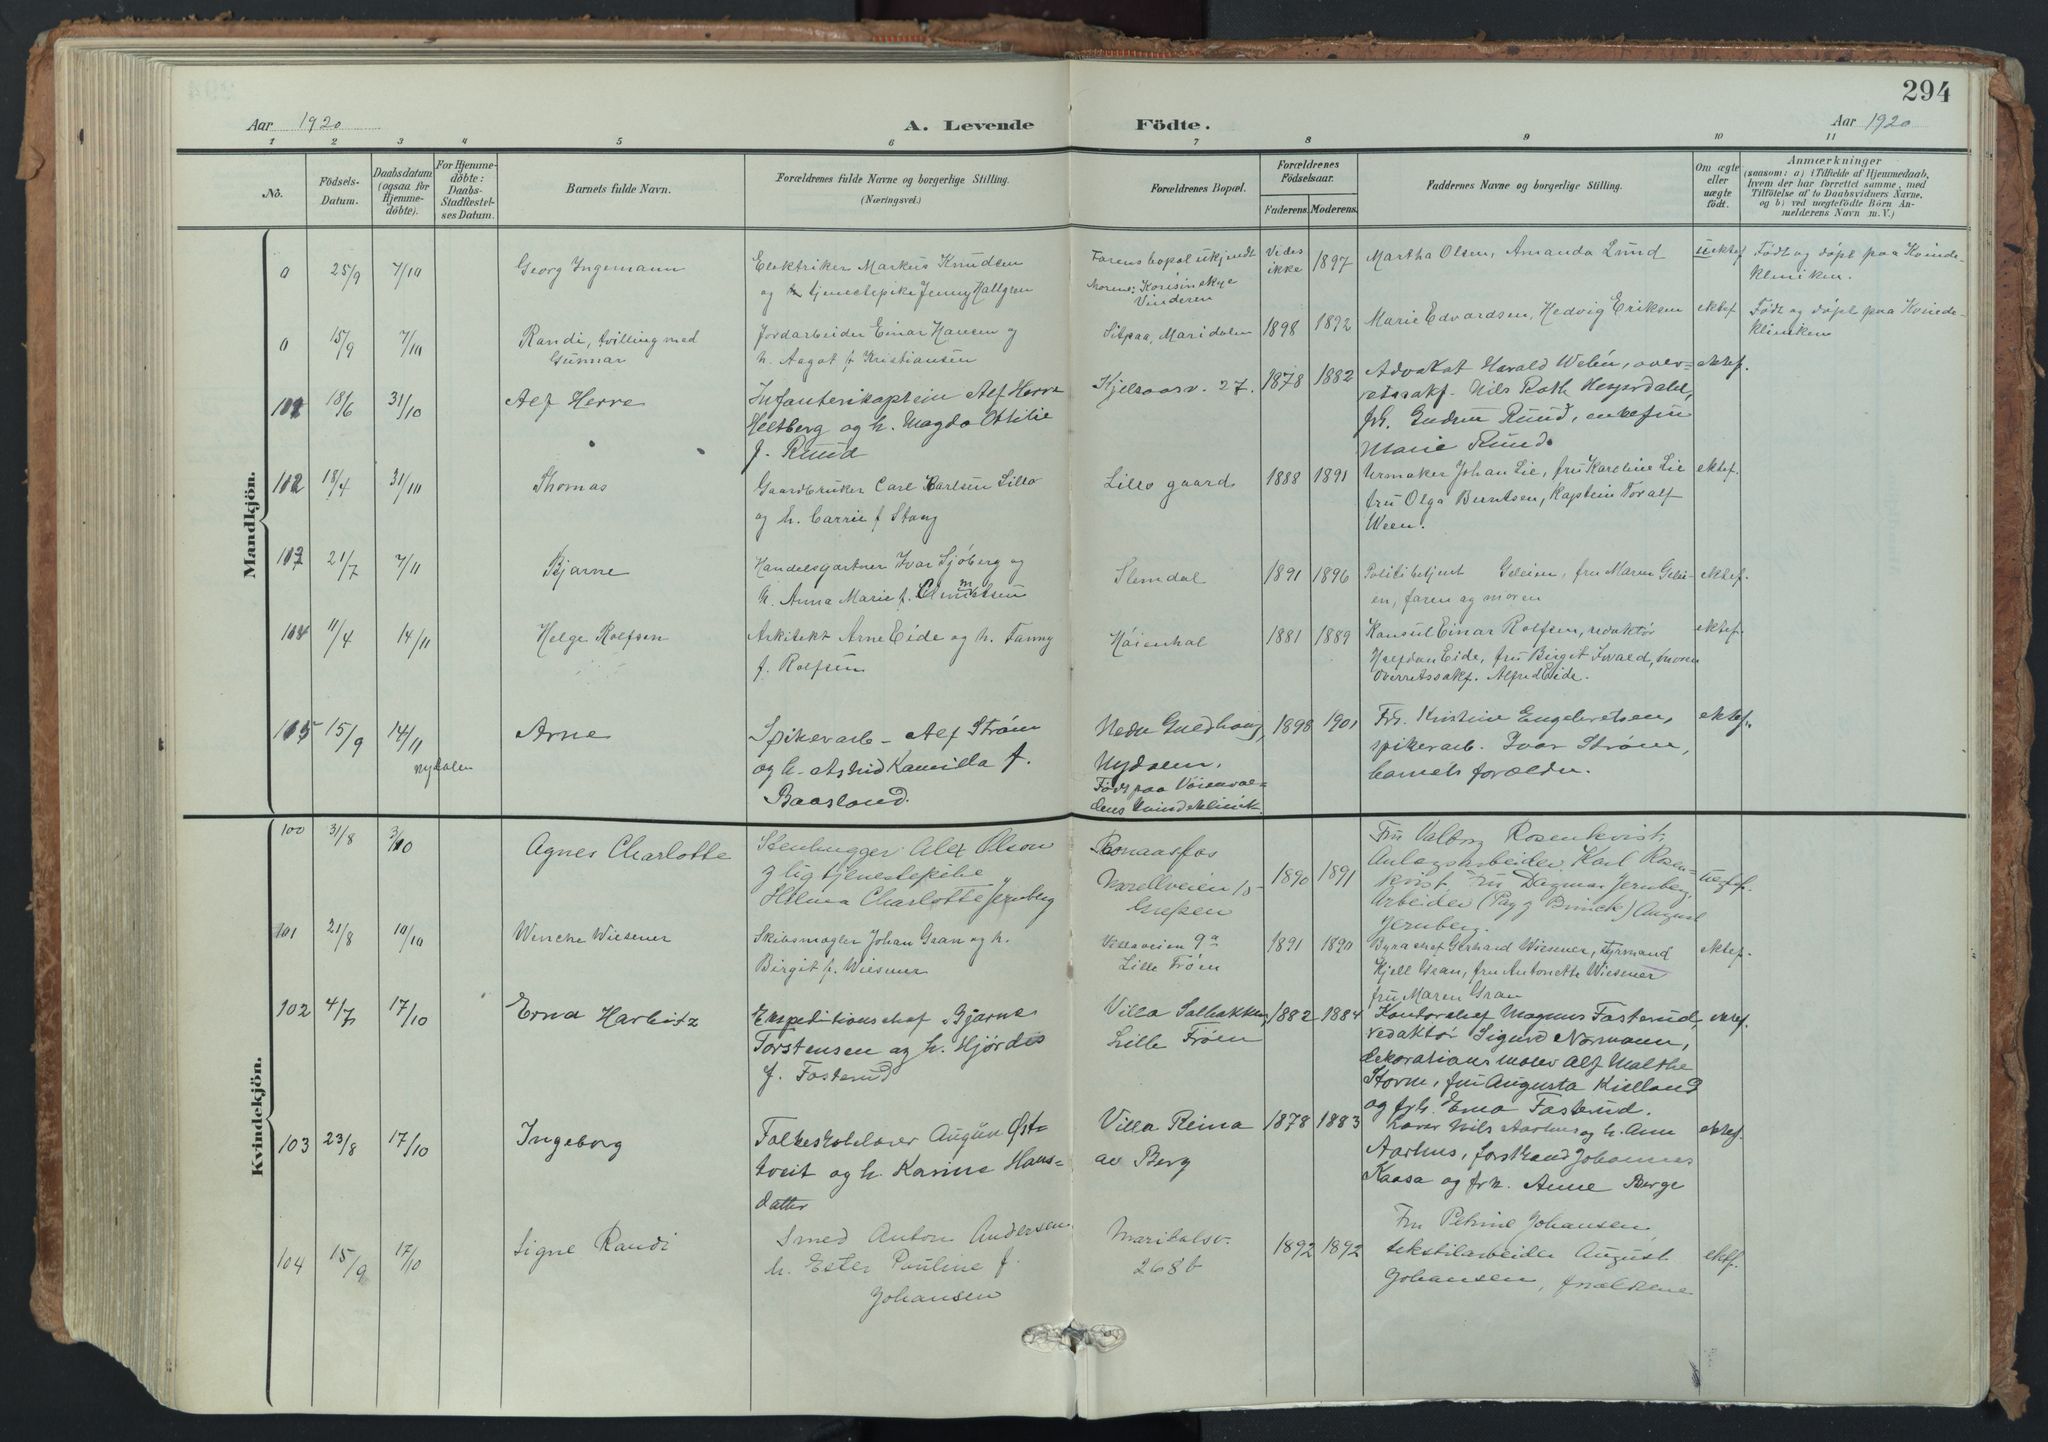 294
Aar 1920
A. Levende
Födte.
Aar 1920
1 2 3 4 5 6 7 8 9 10 11
No.
Födsels-
Datum.
Daabsdatum
(ogsaa for
Hjemme-
döbte).
For Hjemme-
döbte:
Daabs-
Stadfæstel-
ses Datum.
Barnets fulde Navn.
Forældrenes fulde Navne og borgerlige Stilling.
(Næringsvei.)
Forældrenes Bopæl.
Forældrenes
Födselsaar.
Faderens. Moderens.
Faddernes Navne og borgerlige Stilling.
Om ægte
eller
uægte
födt.
Anmærkninger
(saasom: a) i Tilfælde af Hjemmedaab,
hvem der har forrettet samme, med
Tilföielse af to Daabsvidners Navne,
og b) ved uægtefödte Börn An-
melderens Navn m. V.)
Mandkjön.
0 25/9 7/10 Georg Ingemann
Elektriker Markus Knudsen
og tjenestepike Jenny Hallgren
Farens bopæl ukjendt
Morens: Korisinskye
Vinderen
Vides
ikke
1897
Martha Olsen, Amanda Lund
uektef
Født og døpt paa Kvinde-
kliniken.
0 15/9 7/10 Randi, tvilling med
Gunnar
Jordarbeider Einar Hansen og
h. Aagot f. Kristiansen
Sitpaa, Maridalen
1898 1892
Marie Edvardsen, Hedvig Eriksen
ektef
Født og døpt paa Kvinde-
kliniken
18/6 31/10 Alf Herre
Infanterikaptein Alf Herre
Heltberg og h. Magda Ottilie
f. Ruud
Kjelsaasv. 27.
1878 1882
Advokat Harald Welén, over-
retssakf. Nils Roth Heyerdahl,
frk. Gudrun Ruud, enkefru
Marie Ruud.
ektef.
102 18/4 31/10 Thomas
Gaardbruker Carl Karlsen Lillo
og h. Carrie f. Stang
Lillo gaard
1888 1891
Urmaker Johan Lie, fru Karoline Lie
fru Olga Berntsen, Kaptein Toralf
Ween.
ektef.
103 21/7 7/11 Bjarne
Handelsgartner Ivar Sjøberg og
h. Anna Marie f. Clemmetsen
Slemdal
1891 1896
Politibetjent Geleien, fru Maren Gelei-
en, faren og moren
ektef.
104 11/4 14/11 Helge Rolfsen
Arkitekt Arne Eide og h. Fanny
f. Rolfsen
Høienhal
1881 1889
Konsul Einar Rolfsen, redaktør
Halfdan Eide, fru Birgit Evald, moren
overretssakf. Alfred Eide.
ektef.
105 15/9 14/11
nydalen
Arne
Spikerarb. Alf Strøm
og h. Astrid Kamilla f.
Baasland.
Nedre Guldhaug,
Nydalen.
Født paa Vøienvol-
dens Kvindeklinik.
1898 1901
Frk. Kristine Engebretsen,
spikerarb. Ivar Strøm,
barnets forældre.
ektef.
Kvindekjön.
100 31/8 3/10 Agnes Charlotte
Stenhugger Alex Olson
og tjenestepike
Hilma Charlotte Jernberg
Raanaasfos
Morellveien 15
Grefsen
1890 1891
Fru Valborg Rosenkvist,
Anlægsarbeider Karl Rosen-
kvist, Fru Dagmar Jernberg,
Arbeider August
Jernberg.
uegf.
101 21/8 10/10 Wenche Wiesener
Skibsmægler Johan Gran og h.
Birgit f. Wiesener
Villaveien 9a
Lille Frøen
1891 1890
Byråchef Gerhard Wiesener, styrmand
Kjell Gran, fru Antonette Wiesener
fru Maren Gran
ektef.
102 4/7 17/10 Erna Harbitz
Ekspeditionschef Bjarne
Torstensen og h. Hjørdis
f. Fosterud
Villa Solbakken,
Lille Frøen
1882 1884
Kontorchef Magnus Fosterud,
redaktør Sigurd Normann,
dekorationsmaler Alf Malthe
Storm, fru Augusta Kielland
og frk. Erna Fosterud.
103 23/8 17/10 Ingeborg
Folkeskolelærer Augun Øst-
tveit og h. Karine Hans-
datter
Villa Reina
av Berg
1878 1883
Lærer Nils Aarhus og h. Ann
Aarhus, forstkand Johannes
Kaasa og frk. Anne Berge
ektef.
104 15/9 17/10 Signe Randi
Smed Anton Andersen
h. Ester Pauline f.
Johansen
Maridalsv.
268b
1892 1892
Fru Petrine Johansen,
tekstilarbeider August
Johansen, forældrene
ektf.